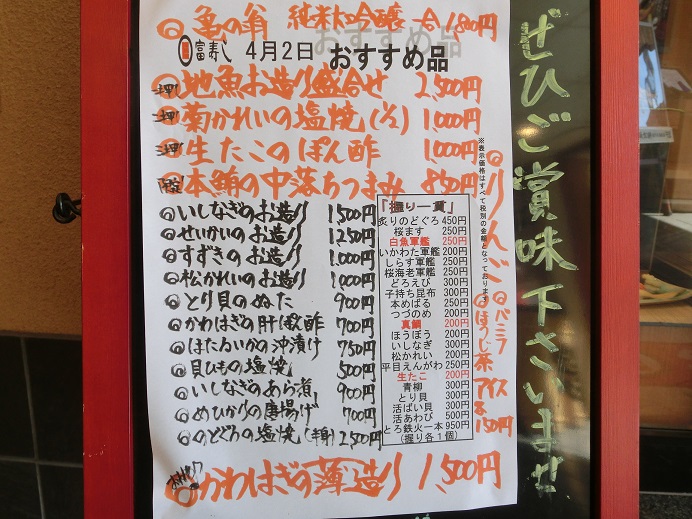 ◎亀の翁 純米大吟醸 一合 1,800円
富寿し 4月2日 おすすめ品
◎地魚お造り盛合せ 2,500円
◎菊かれいの塩焼(1/2) 1,000円
◎生たこのぽん酢 1,000円
◎本鮪の中落ちつまみ 850円
◎いしなぎのお造り 1,500円
◎せいかいのお造り 1,250円
◎すずきのお造り 1,000円
◎松かれいのお造り 1,000円
◎とり貝のぬた 900円
◎かわはぎの肝ぽん酢 700円
◎ほたるいかの沖漬け 750円
◎貝ひもの塩焼 500円
◎いしなぎのあら煮 900円
◎めひかりの唐揚げ 700円
◎のどぐろの塩焼(半身) 2,500円
◎かわはぎの薄造り 1,500円
「握り一貫」
炙りのどぐろ 450円
桜ます 250円
白魚軍艦 250円
いかわた軍艦 250円
しらす軍艦 250円
桜海老軍艦 250円
どろえび 300円
子持ち昆布 300円
本めばる 250円
つづのめ 200円
真鯛 200円
ほうぼう 200円
いしなぎ 300円
松かれい 200円
平目えんがわ 250円
生たこ 200円
青柳 300円
とり貝 300円
活ばい貝 300円
活あわび 500円
とろ鉄火一本 950円
(握り各1個)
※表示価格はすべて税別の金額となっております
◎りんご
◎バニラ
◎ほうじ茶
アイス
各150円
ぜひご賞味下さいませ